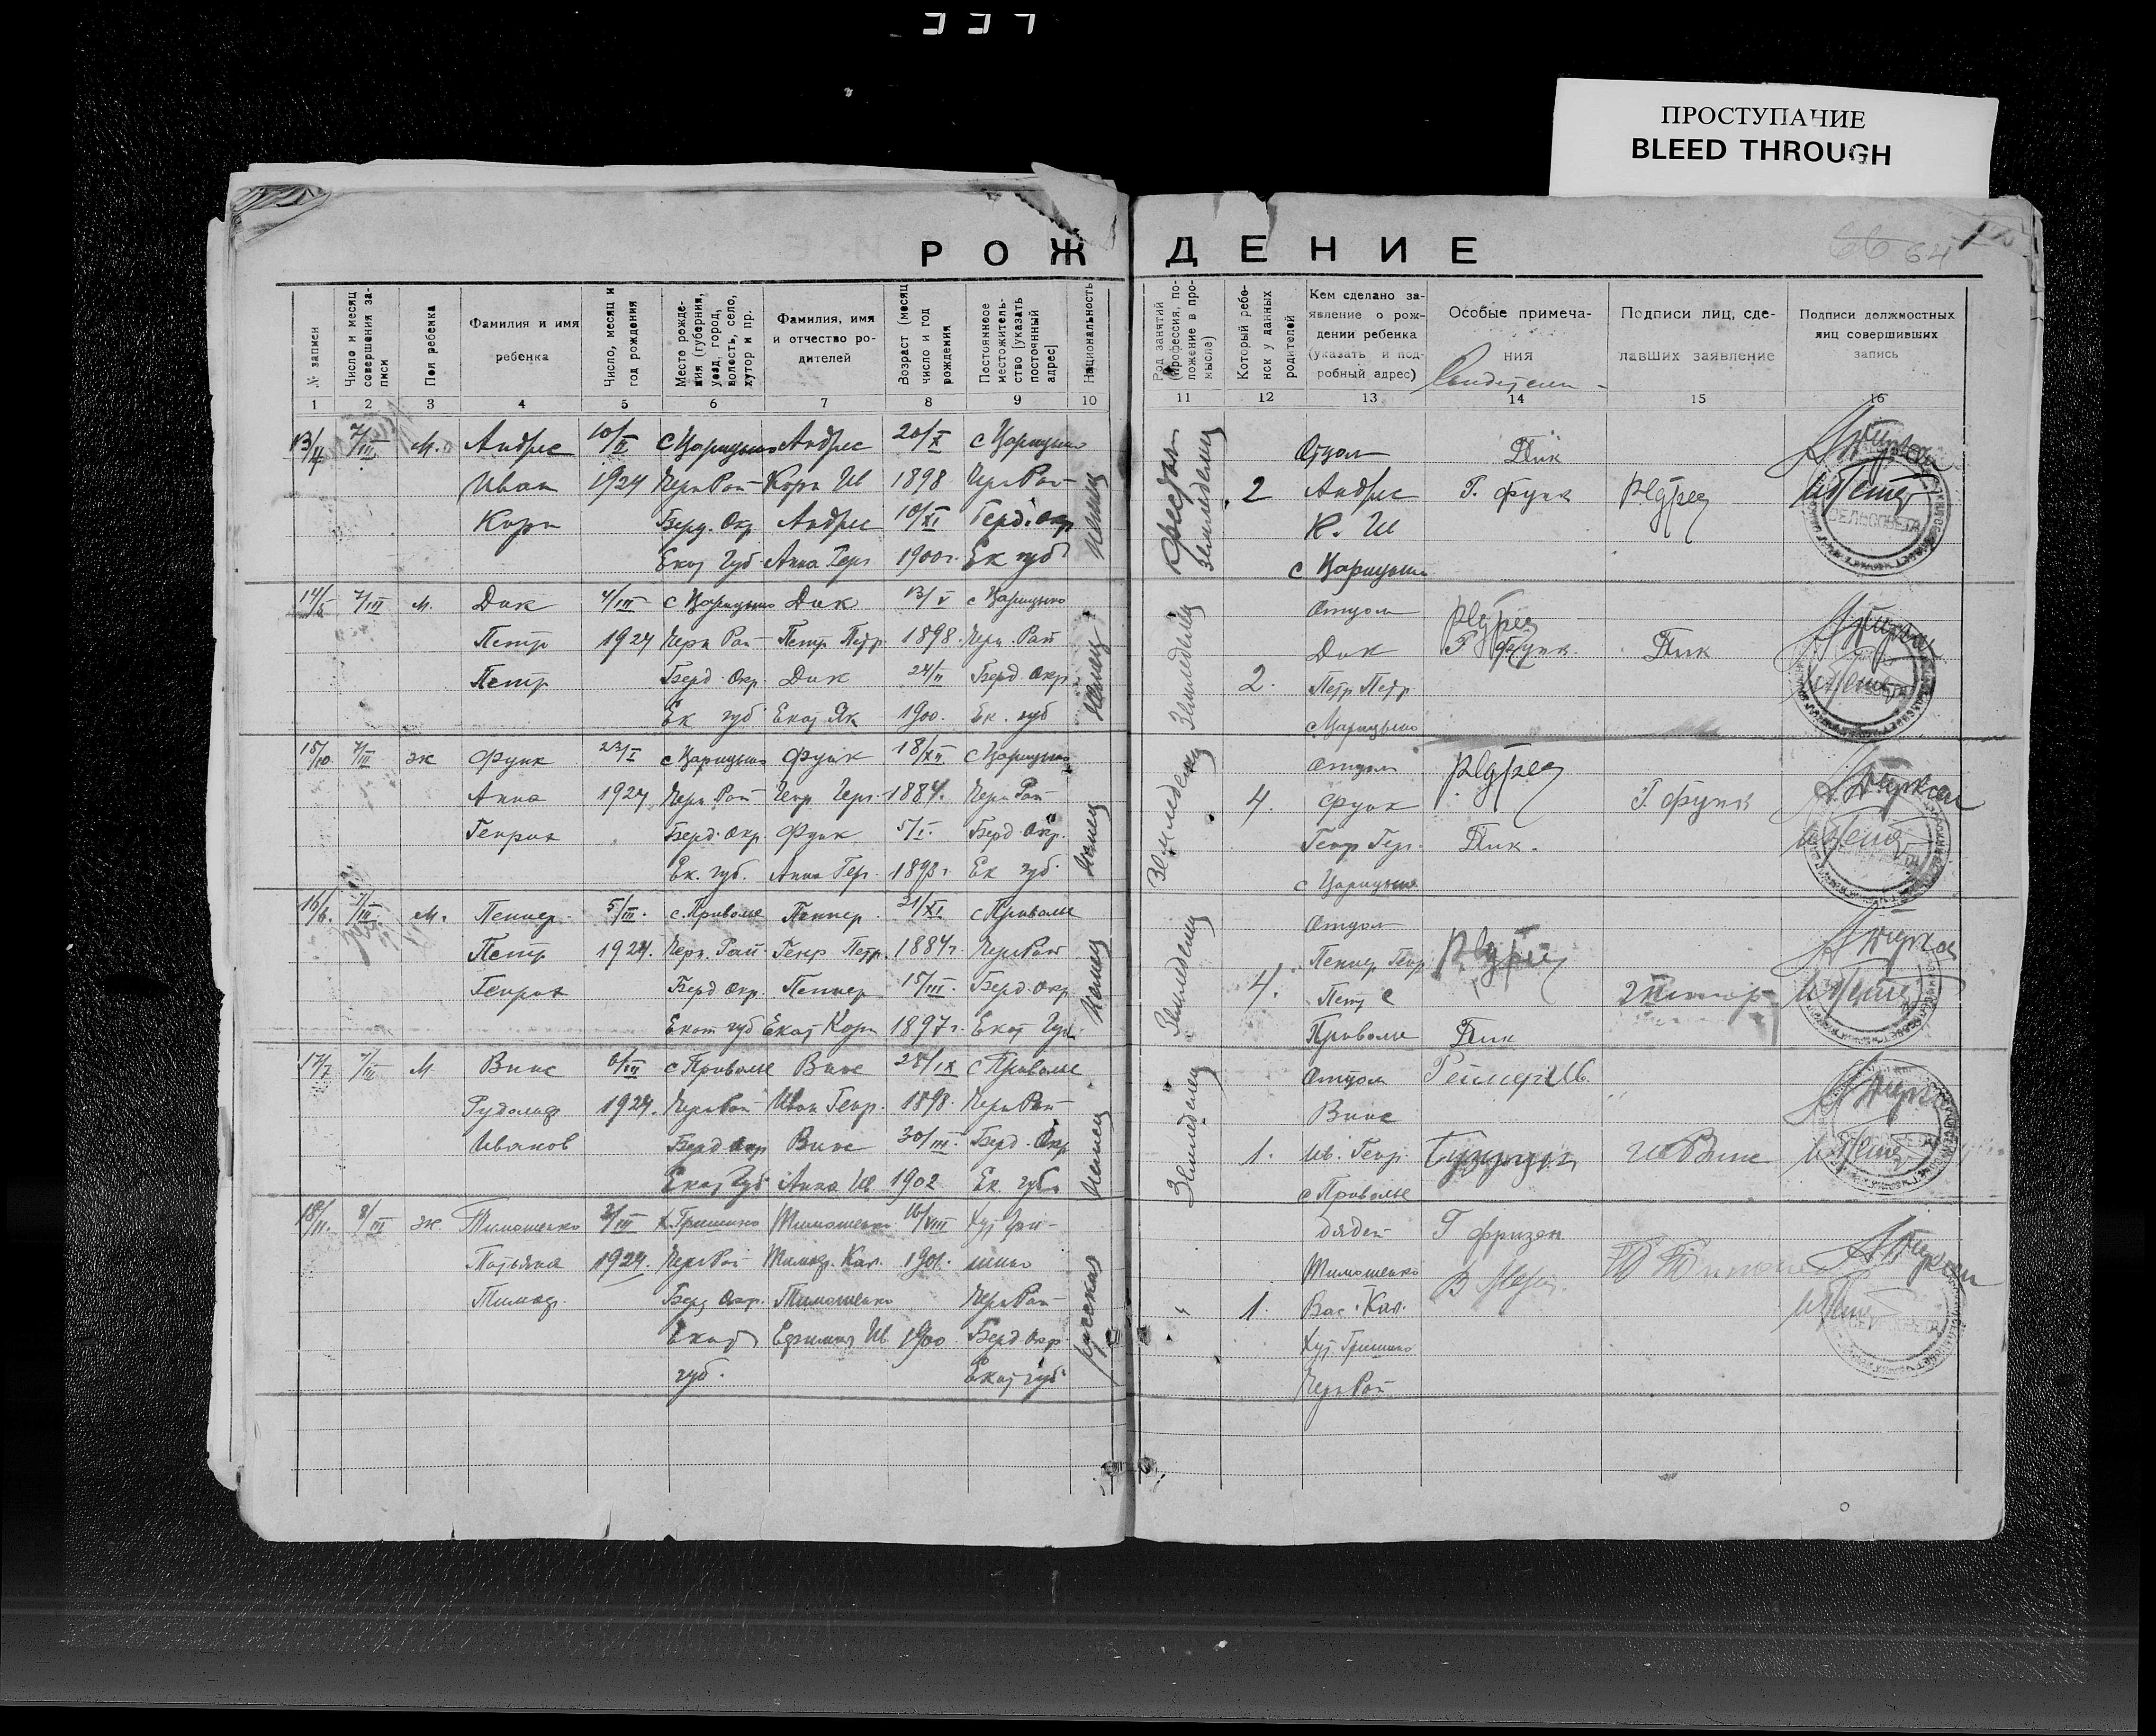 337
ПРОСТУПАНИЕ
BLEED THROUGH
РОЖДЕНИЕ
64
№ записи
Число и месяц совершения записи
Пол ребенка
Фамилия и имя ребенка
Число, месяц и год рождения
Место рождения (губерния, уезд, город, волость, село, хутор и пр.
Фамилия, имя и отчество родителей
Возраст (месяц число и год рождения
Постоянное местожительство [указать постоянный адрес]
Национальность
Род занятий (профессия, положение в промысле)
Который ребенок у данных родителей
Кем сделано заявление о рождении ребенка (указать и подробный адрес)
Особые примечания
Подписи лиц, сделавших заявление
Подписи должностных лиц совершивших запись
1 2 3 4 5 6 7 8 9 10 11 12 13 14 15 16
13/4 7/III М. Андрес 10/II с Царицыно Андрес 20/X с Царицыно Отцом Пик
Иван 1924 Черн Рай Корн Ив 1898 Черн Рай 2 Андрес Г. Функ
Корн Берд. Окр Андрес 10/XI Берд. Окр К. И
Екат Губ Анна Герг 1900г. Ек губ с Царицыно
немец
Земледелец
14/5 7/III м. Дик 4/III с Царицыно Дик 13/V с Царицыно отцом
Петр 1924 Черн Рай Петр Петр 1898. Черн. Рай Дик Г Функ Пик
Петр Берд. Окр. Дик 24/II Берд. Окр. 2. Петр Петр
Ек губ Екат Як 1900. Ек. губ с Царицыно
немец
Земледелец
15/10 7/III ж Функ 23/I с Царицыно Функ 18/XII с Царицыно отцом
Анна 1924 Черн Рай Генр Генр. 1884. Черн Рай 4. Функ Г. Функ
Генрих Берд. Окр. Функ 5/I. Берд. Окр. Генр Генр. Пик.
Ек. губ. Анна Гер. 1893г. Ек губ. с Царицыно
немец
Земледелец
16/6. 7/III м. Пеннер. 5/III. с. Приволье Пеннер. 21/XI с Приволье отцом
Петр 1924. Черн. Рай Генр Петр. 1884г. Черн Рай Пеннер Генр.
Генрих Берд Окр. Пеннер 15/III. Берд. окр. 4. Петр с
Екат губ Екат Корн 1897г. Екат Губ. Приволье Пик
немец
Земледелец
17/7 7/III М Винс 6/III с Приволье Винс 28/IX с Приволье Отцом
Рудольф 1924. Черн Рай Иван Генр. 1898. Черн Рай Винс
Иванов Берд окр Винс 30/III. Берд. Окр 1. Ив. Генр. И Винс
Екат Губ Анна Ив 1902 Ек. губ. с Приволье
немец
Земледелец
18/11. 8/III ж. Тимошенко 2/III х. Гришино Тимошенко 16/VIII Хут Гри- дядей Г Фризен
Татьяна 1924. Черн Рай Тимоф. Кал. 1901. шино Тимошенко
Тимоф. Берд Окр. Тимошенко Черн Рай " 1. Вас. Кал.
Екат Ефимия Ив 1900 Берд окр. Хут Гришино
губ. Екат губ Черн Рай
русская